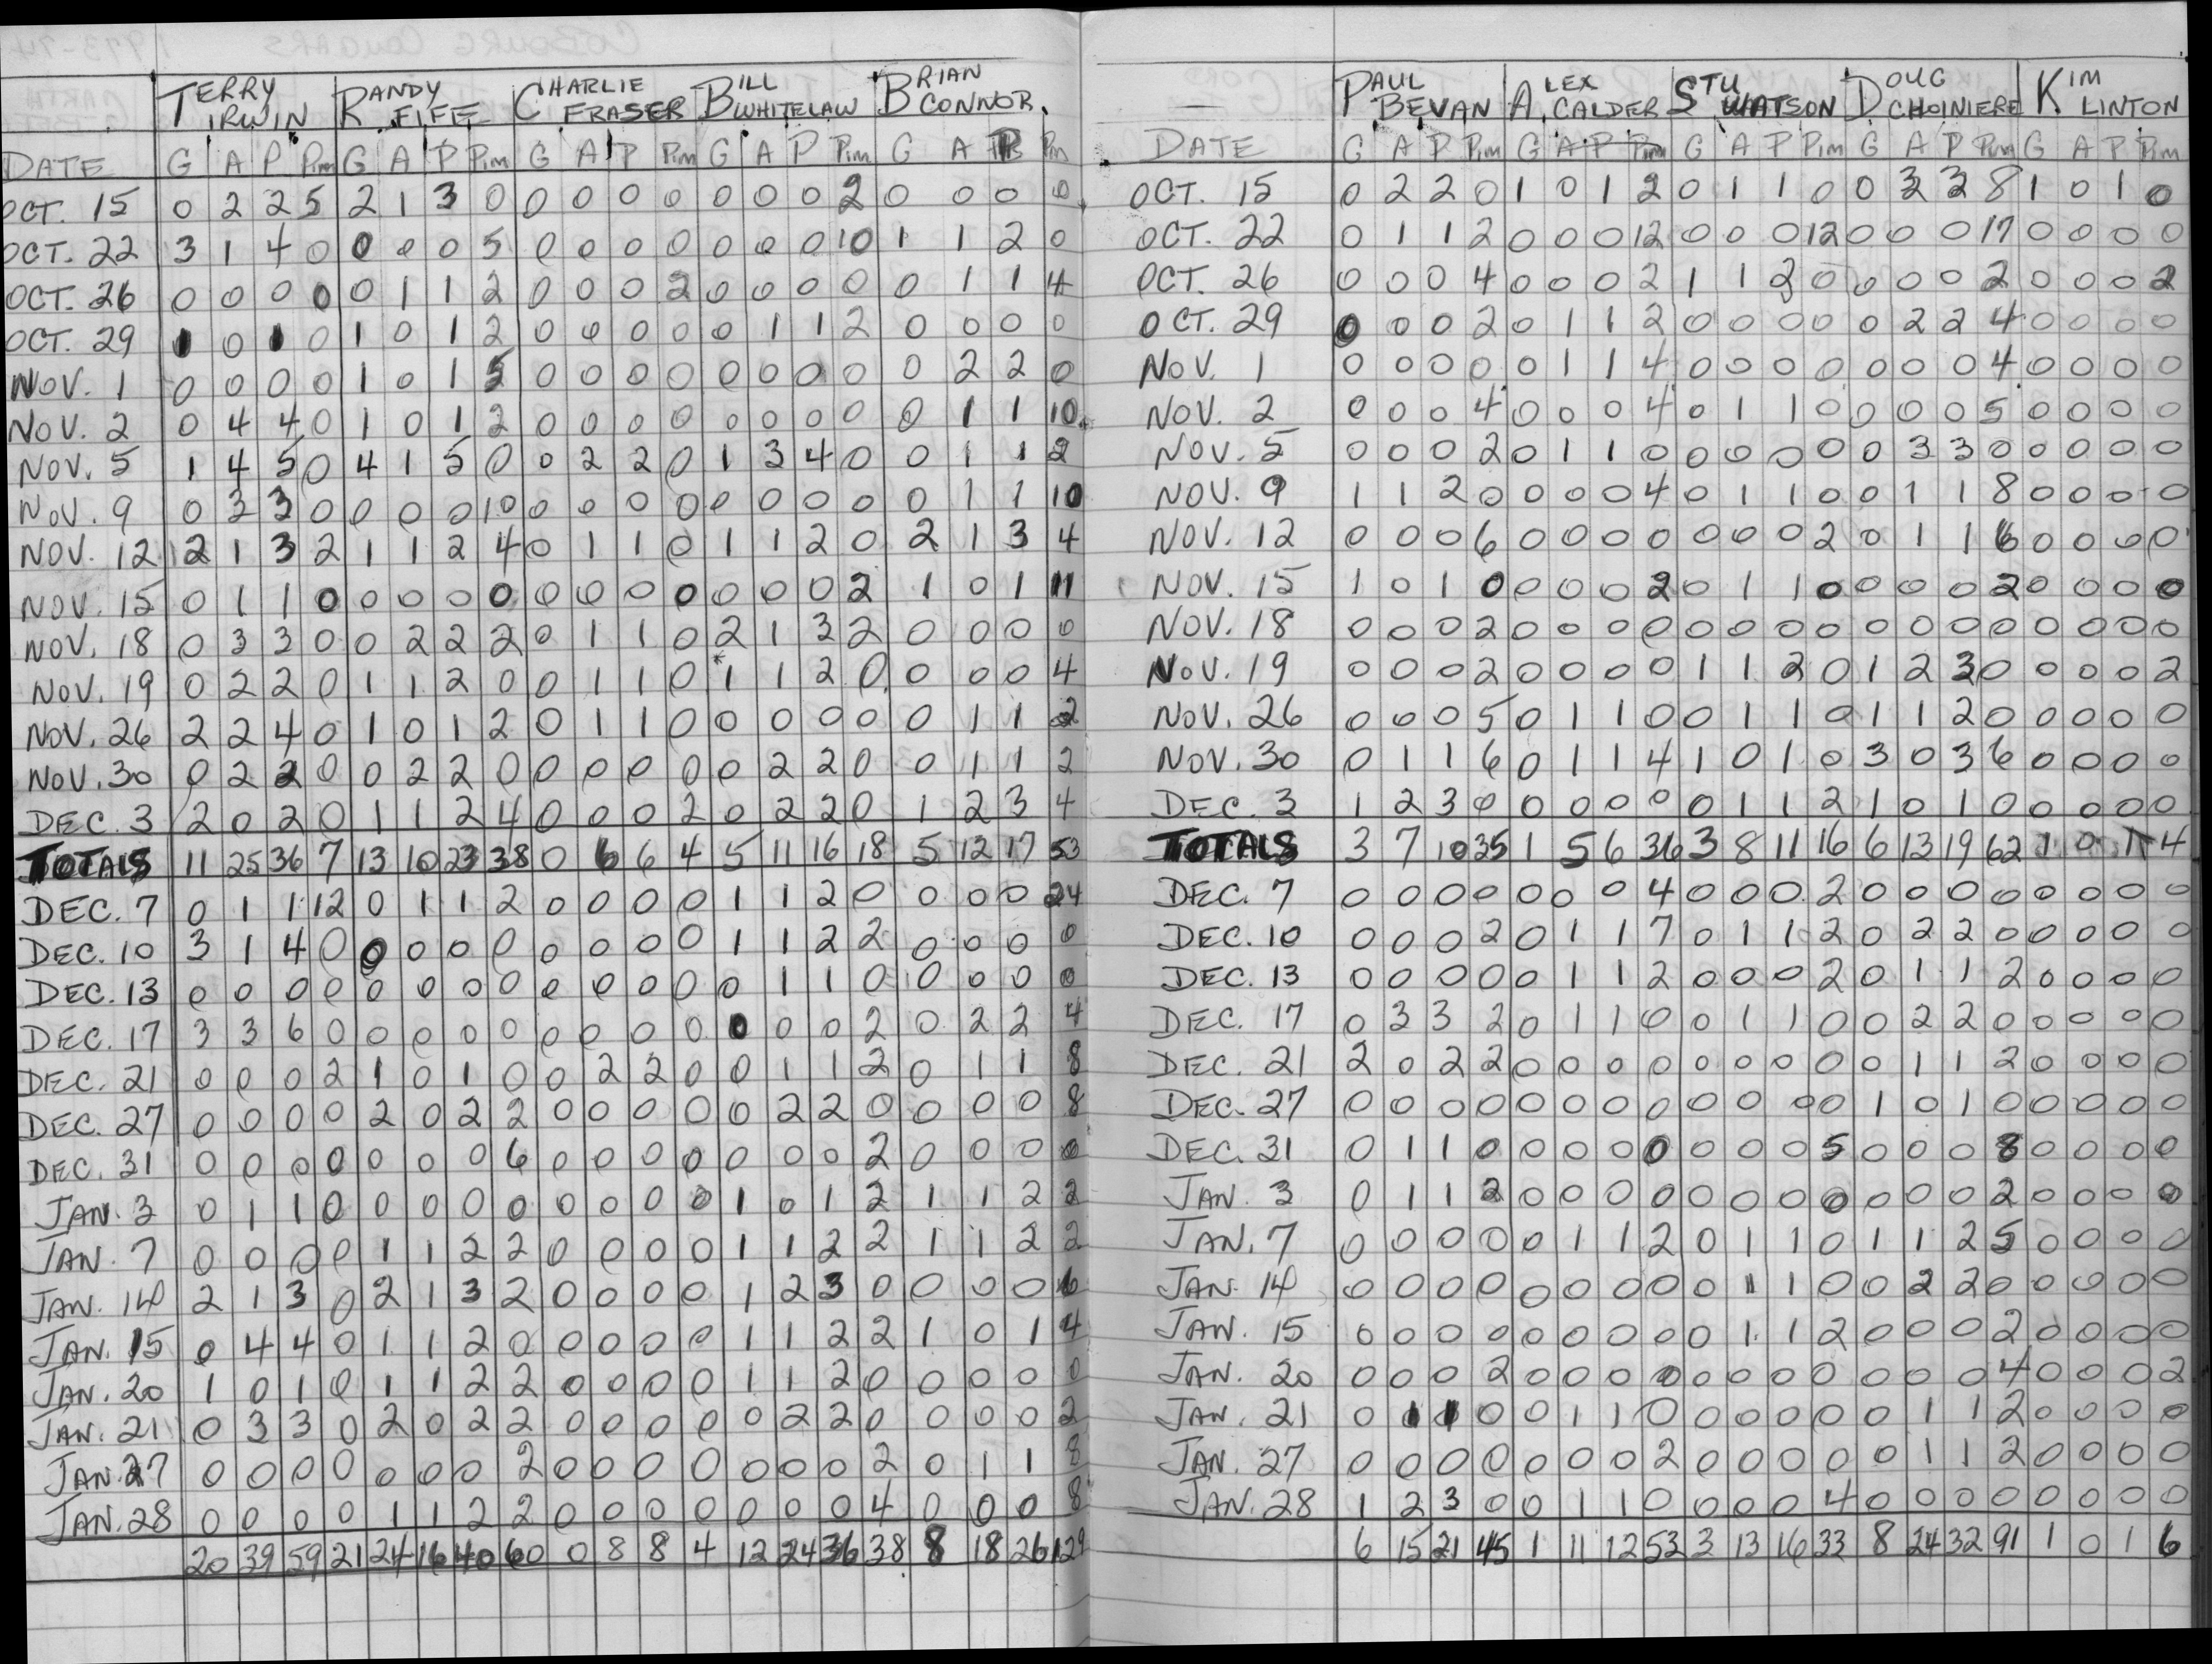 TERRY IRWIN RANDY FIFE CHARLIE FRASER BILL WHITELAW BRIAN CONNOR.
DATE G A P Pim G A P Pim G A P Pim G A P Pim G A P Pim
OCT. 15 0 2 2 5 2 1 3 0 0 0 0 0 0 0 0 2 0 0 0 0
OCT. 22 3 1 4 0 0 0 0 5 0 0 0 0 0 0 0 10 1 1 2 0
OCT. 26 0 0 0 0 0 1 1 2 0 0 0 2 0 0 0 0 0 1 1 4
OCT. 29 1 0 1 0 1 0 1 2 0 0 0 0 0 1 1 2 0 0 0 0
NOV. 1 0 0 0 0 1 0 1 5 0 0 0 0 0 0 0 0 0 2 2 0
NOV. 2 0 4 4 0 1 0 1 2 0 0 0 0 0 0 0 0 0 1 1 10
NOV. 5 1 4 5 0 4 1 5 0 0 2 2 0 1 3 4 0 0 1 1 2
NOV. 9 0 3 3 0 0 0 0 10 0 0 0 0 0 0 0 0 0 1 1 10
NOV. 12 2 1 3 2 1 1 2 4 0 1 1 0 1 1 2 0 2 1 3 4
NOV. 15 0 1 1 0 0 0 0 0 0 0 0 0 0 0 0 2 1 0 1 11
NOV. 18 0 3 3 0 0 2 2 2 0 1 1 0 2 1 3 2 0 0 0 0
NOV. 19 0 2 2 0 1 1 2 0 0 1 1 0 *1 1 2 0 0 0 0 4
NOV. 26 2 2 4 0 1 0 1 2 0 1 1 0 0 0 0 0 0 1 1 2
NOV. 30 0 2 2 0 0 2 2 0 0 0 0 0 0 2 2 0 0 1 1 2
DEC. 3 2 0 2 0 1 1 2 4 0 0 0 2 0 2 2 0 1 2 3 4
TOTALS 11 25 36 7 13 10 23 38 0 6 6 4 5 11 16 18 5 12 17 53
DEC. 7 0 1 1 12 0 1 1 2 0 0 0 0 1 1 2 0 0 0 0 24
DEC. 10 3 1 4 0 0 0 0 0 0 0 0 0 1 1 2 2 0 0 0 0
DEC. 13 0 0 0 0 0 0 0 0 0 0 0 0 0 1 1 0 0 0 0 0
DEC. 17 3 3 6 0 0 0 0 0 0 0 0 0 0 0 0 2 0 2 2 4
DEC. 21 0 0 0 2 1 0 1 0 0 2 2 0 0 1 1 2 0 1 1 8
DEC. 27 0 0 0 0 2 0 2 2 0 0 0 0 0 2 2 0 0 0 0 8
DEC. 31 0 0 0 0 0 0 0 6 0 0 0 0 0 0 0 2 0 0 0 0
JAN. 3 0 1 1 0 0 0 0 0 0 0 0 0 1 0 1 2 1 1 2 2
JAN. 7 0 0 0 0 1 1 2 2 0 0 0 0 1 1 2 2 1 1 2 2
JAN. 14 2 1 3 0 2 1 3 2 0 0 0 0 1 2 3 0 0 0 0 6
JAN. 15 0 4 4 0 1 1 2 0 0 0 0 0 1 1 2 2 1 0 1 4
JAN. 20 1 0 1 0 1 1 2 2 0 0 0 0 1 1 2 0 0 0 0 0
JAN. 21 0 3 3 0 2 0 2 2 0 0 0 0 0 2 2 0 0 0 0 2
JAN. 27 0 0 0 0 0 0 0 2 0 0 0 0 0 0 0 2 0 1 1 8
JAN. 28 0 0 0 0 1 1 2 2 0 0 0 0 0 0 0 4 0 0 0 8
20 39 59 21 24 16 40 60 0 8 8 4 12 24 36 38 8 18 26 129
PAUL BEVAN ALEX CALDER STU WATSON DOUG CHOINIERE KIM LINTON
DATE G A P Pim G A P Pim G A P Pim G A P Pim G A P Pim
OCT. 15 0 2 2 0 1 0 1 2 0 1 1 0 0 3 3 8 1 0 1 0
OCT. 22 0 1 1 2 0 0 0 12 0 0 0 12 0 0 0 17 0 0 0 0
OCT. 26 0 0 0 4 0 0 0 2 1 1 2 0 0 0 0 2 0 0 0 2
OCT. 29 0 0 0 2 0 1 1 2 0 0 0 0 0 2 2 4 0 0 0 0
NOV. 1 0 0 0 0 0 1 1 4 0 0 0 0 0 0 0 4 0 0 0 0
NOV. 2 0 0 0 4 0 0 0 4 0 1 1 0 0 0 0 5 0 0 0 0
NOV. 5 0 0 0 2 0 1 1 0 0 0 0 0 0 3 3 0 0 0 0 0
NOV. 9 1 1 2 0 0 0 0 4 0 1 1 0 0 1 1 8 0 0 0 0
NOV. 12 0 0 0 6 0 0 0 0 0 0 0 2 0 1 1 6 0 0 0 0
NOV. 15 1 0 1 0 0 0 0 2 0 1 1 0 0 0 0 2 0 0 0 0
NOV. 18 0 0 0 2 0 0 0 0 0 0 0 0 0 0 0 0 0 0 0 0
NOV. 19 0 0 0 2 0 0 0 0 1 1 2 0 1 2 3 0 0 0 0 2
NOV. 26 0 0 0 5 0 1 1 0 0 1 1 0 1 1 2 0 0 0 0 0
NOV. 30 0 1 1 6 0 1 1 4 1 0 1 0 3 0 3 6 0 0 0 0
DEC. 3 1 2 3 0 0 0 0 0 0 1 1 2 1 0 1 0 0 0 0 0
TOTALS 3 7 10 35 1 5 6 36 3 8 11 16 6 13 19 62 1 0 1 4
DEC. 7 0 0 0 0 0 0 0 4 0 0 0 2 0 0 0 0 0 0 0 0
DEC. 10 0 0 0 2 0 1 1 7 0 1 1 2 0 2 2 0 0 0 0 0
DEC. 13 0 0 0 0 0 1 1 2 0 0 0 2 0 1 1 2 0 0 0 0
DEC. 17 0 3 3 2 0 1 1 0 0 1 1 0 0 2 2 0 0 0 0 0
DEC. 21 2 0 2 2 0 0 0 0 0 0 0 0 0 1 1 2 0 0 0 0
DEC. 27 0 0 0 0 0 0 0 0 0 0 0 0 1 0 1 0 0 0 0 0
DEC. 31 0 1 1 0 0 0 0 0 0 0 0 5 0 0 0 8 0 0 0 0
JAN. 3 0 1 1 2 0 0 0 0 0 0 0 0 0 0 0 2 0 0 0 0
JAN. 7 0 0 0 0 0 1 1 2 0 1 1 0 1 1 2 5 0 0 0 0
JAN. 14 0 0 0 0 0 0 0 0 0 1 1 0 0 2 2 0 0 0 0 0
JAN. 15 0 0 0 0 0 0 0 0 0 1 1 2 0 0 0 2 0 0 0 0
JAN. 20 0 0 0 2 0 0 0 0 0 0 0 0 0 0 0 4 0 0 0 2
JAN. 21 0 1 1 0 0 1 1 0 0 0 0 0 0 1 1 2 0 0 0 0
JAN. 27 0 0 0 0 0 0 0 2 0 0 0 0 0 1 1 2 0 0 0 0
JAN. 28 1 2 3 0 0 1 1 0 0 0 0 4 0 0 0 0 0 0 0 0
6 15 21 45 1 11 12 53 3 13 16 33 8 24 32 91 1 0 1 6